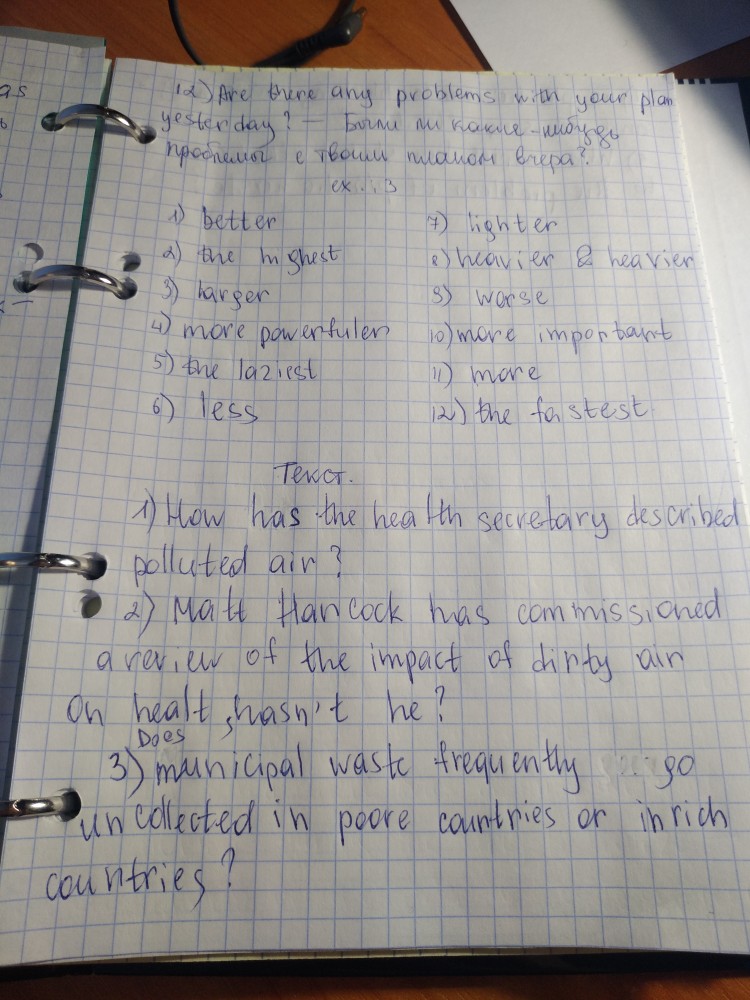 as
ь
12) Are there any problems with your plan
yesterday? – Были ли какие-нибудь
проблемы с твоим планом вчера?
ex. 13
1) better
2) the highest
3) larger
4) more powerfuler
5) the laziest
6) less
7) lighter
8) heavier & heavier
9) worse
10) more important
11) more
12) the fastest
Текст.
1) How has the health secretary described
polluted air?
2) Matt Hancock has commissioned
a review of the impact of dirty air
on healt, hasn't he?
Does
3) municipal waste frequently go
uncollected in poore countries or in rich
countries?